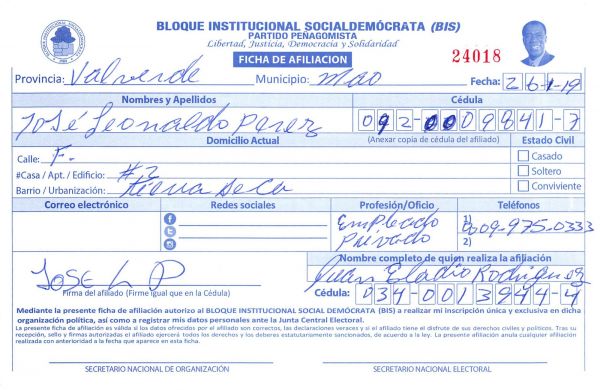 BLOQUE INSTITUCIONAL SOCIALDEMÓCRATA (BIS)
PARTIDO PEÑAGOMISTA
Libertad, Justicia, Democracia y Solidaridad
FICHA DE AFILIACION
24018
Provincia: Valverde Municipio: Mao Fecha: 26-1-19
Nombres y Apellidos Cédula
José Leonaldo Perez 092-0009841-7
(Anexar copia de cédula del afiliado)
Domicilio Actual Estado Civil
Calle: F. Casado
#Casa / Apt. / Edificio: #2 Soltero
Barrio / Urbanización: Conviviente
Correo electrónico Redes sociales Profesión/Oficio Teléfonos
Empleado Privado
1) 809-975-0333
2)
Nombre completo de quim realiza la afiliación
Juan Eladio Rodriguez
JOSE L P
Firma del afiliado (Firme igual que en la Cédula)
Cédula: 034-0013944-4
Mediante la presente ficha de afiliación autorizo al BLOQUE INSTITUCIONAL SOCIAL DEMÓCRATA (BIS) a realizar mi inscripción única y exclusiva en dicha
organización política, así como a registrar mis datos personales ante la Junta Central Electoral.
La presente ficha de afiliación es válida si los datos ofrecidos por el afiliado son correctos, las declaraciones veraces y si el afiliado tiene el disfrute de sus derechos civiles y políticos. Tras su
recepción, sello y firmas autorizadas el afiliado ejercerá todos los derechos y los deberes estatutariamente sancionados, de acuerdo a la ley. La presente afiliación anula cualquier afiliación
realizada con anterioridad a la fecha que aparece en esta ficha.
SECRETARIO NACIONAL DE ORGANIZACIÓN SECRETARIO NACIONAL ELECTORAL